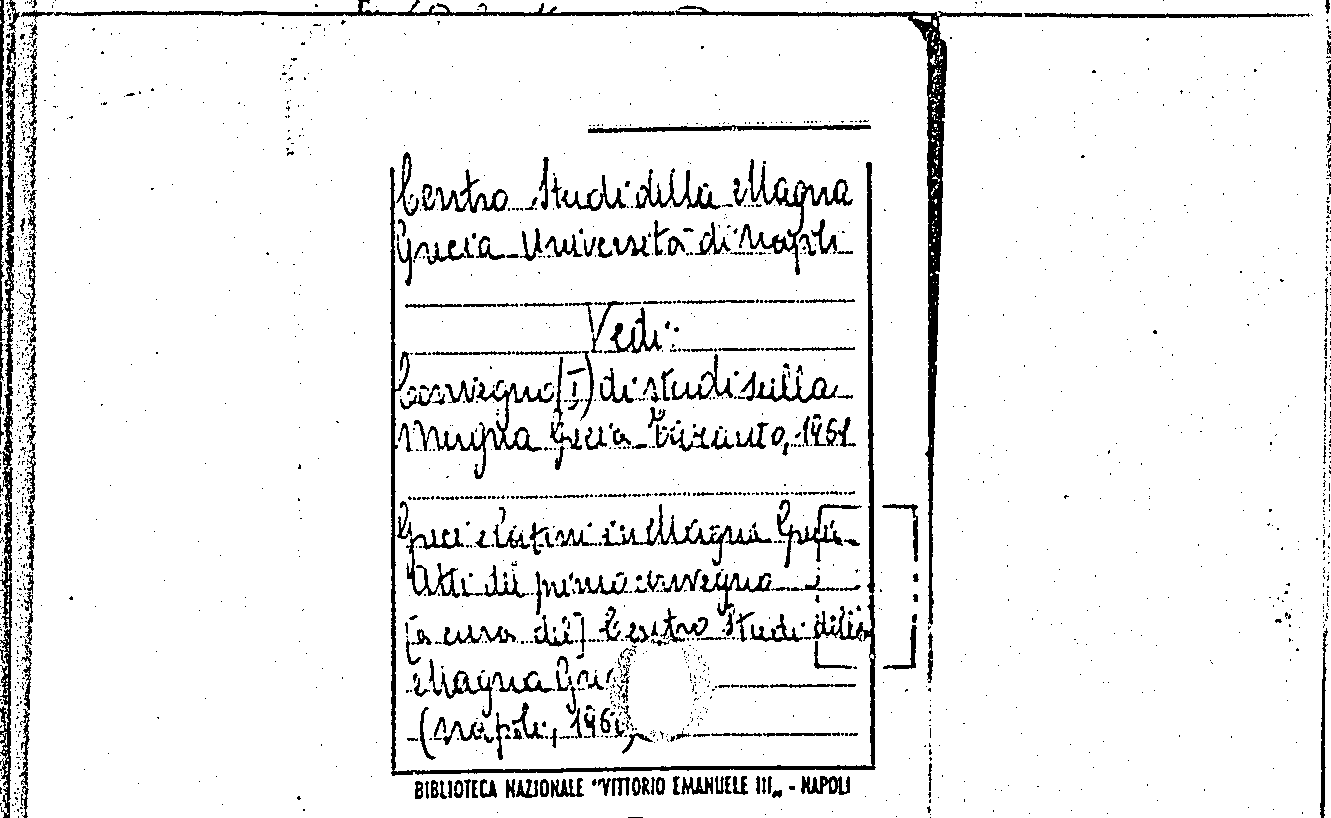 Centro Studi della Magna
Grecia Università di Napoli
Vedi:
Convegno (I) di studi sulla
Magna Grecia Taranto, 1961
Greci e Latini in Magna Grecia.
Atti del primo convegno
[a cura del] Centro Studi della
Magna
(Napoli,
BIBLIOTECA NAZIONALE "VITTORIO EMANUELE III„ - NAPOLI